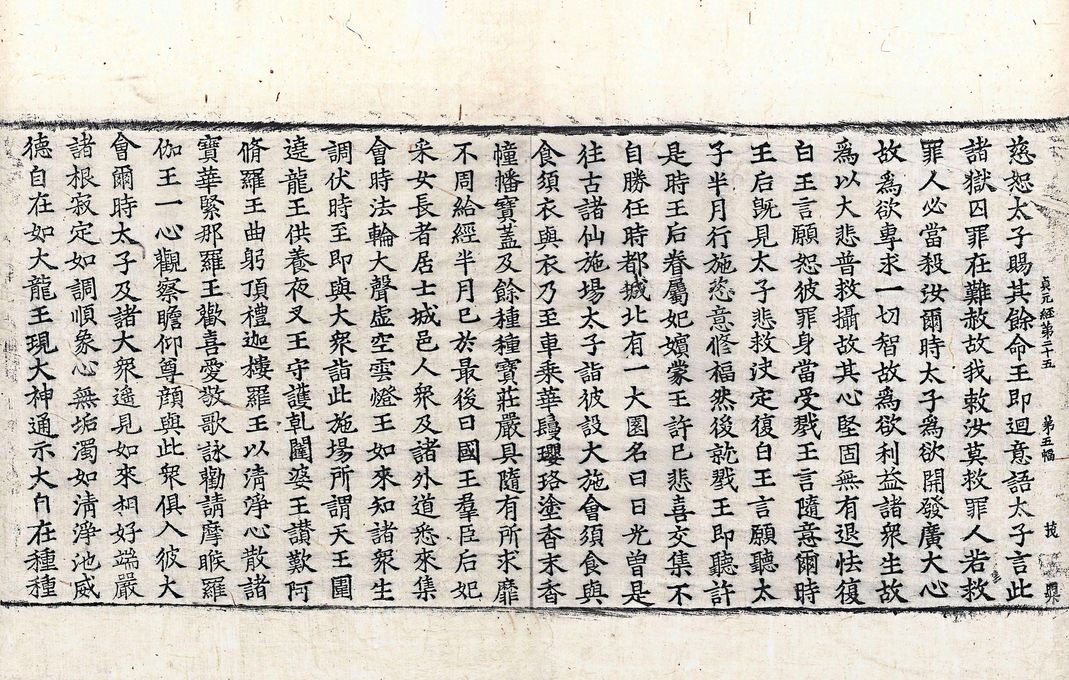 貞元經第二十五　第五幅　技
慈恕太子賜其餘命王即迴意語太子言此
諸獄囚罪在難赦故我敕汝莫救罪人若救
罪人必當殺汝爾時太子爲欲開發廣大心
故爲欲專求一切智故爲欲利益諸衆生故
爲以大悲普救攝故其心堅固無有退怯復
白王言願恕彼罪身當受戮王言隨意爾時
王后旣見太子悲救決定復白王言願聽太
子半月行施恣意修福然後就戮王即聽許
是時王后眷屬妃嬪蒙王許已悲喜交集不
自勝任時都城北有一大園名曰日光曾是
往古諸仙施場太子詣彼設大施會須食與
食須衣與衣乃至車乘華鬘瓔珞塗香末香
幢幡寶蓋及餘種種寶莊嚴具隨有所求靡
不周給經半月已於最後日國王羣臣后妃
采女長者居士城邑人衆及諸外道悉來集
會時法輪大聲虛空雲燈王如來知諸衆生
調伏時至即與大衆詣此施場所謂天王圍
遶龍王供養夜叉王守護乹闥婆王讚歎阿
脩羅王曲躬頂禮迦樓羅王以清淨心散諸
寶華緊那羅王歡喜愛敬歌詠勸請摩睺羅
伽王一心觀察瞻仰尊顏與此衆俱入彼大
會爾時太子及諸大衆遙見如來相好端嚴
諸根寂定如調順象心無垢濁如清淨池威
德自在如大龍王現大神通示大自在種種